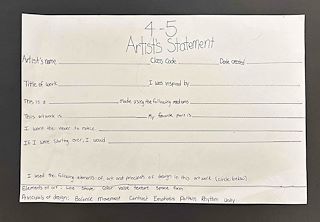 4-5
Artist's Statement
Artist's name Class Code Date created
Title of work I was inspired by
This is a made using the following mediums
This artwork is My favorite part is
I want the viewer to notice
If I were starting over, I would
I used the following elements of art and principals of design in this artwork (circle below)
Elements of art: Line Shape Color Value Texture Space Form
Principals of design: Balance Movement Contrast Emphasis Pattern Rhythm Unity